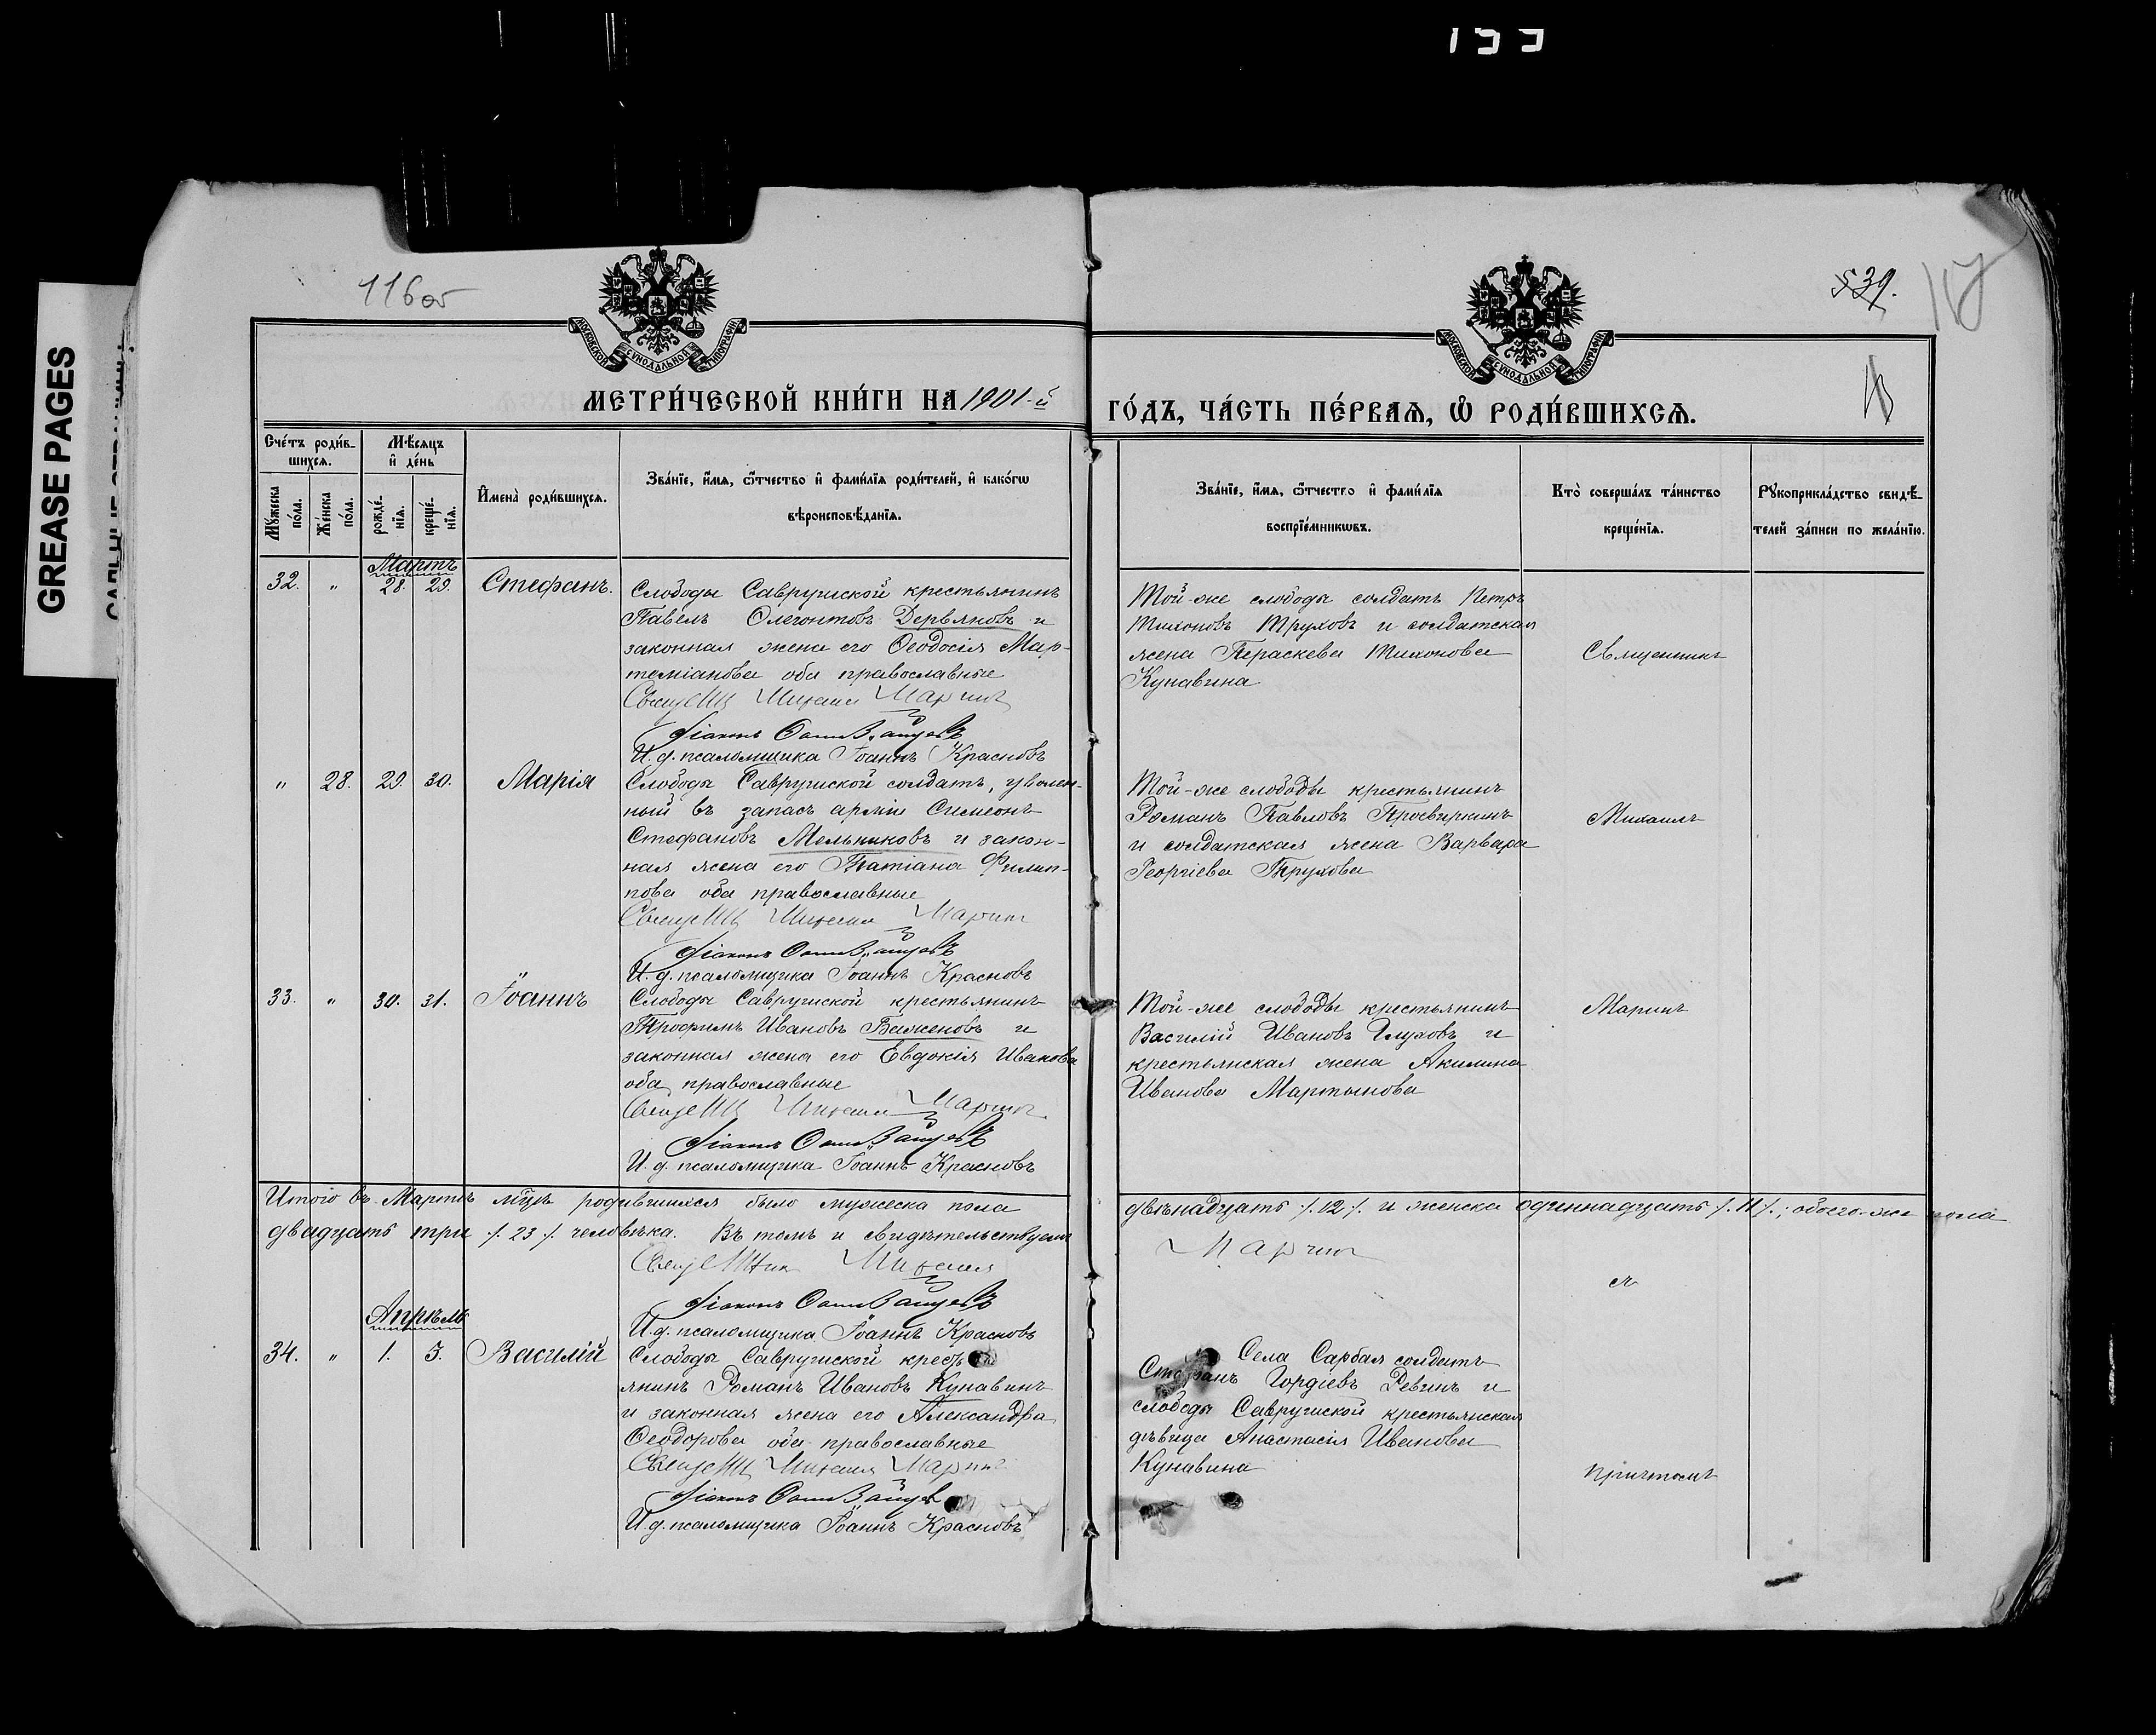 133
GREASE PAGES
116об
539.
117
МОСКОВСКОЙ СѴНОДАЛЬНОЙ ТИПОГРАФІИ
МОСКОВСКОЙ СѴНОДАЛЬНОЙ ТИПОГРАФІИ
МЕТРИ́ЧЕСКОЙ КНИ́ГИ НА 1901-й
ГО́ДЪ, ЧА́СТЬ ПЕ́РВАѦ, Ѡ҆ РОДИ́ВШИХСѦ.
Сче́тъ роди́в-
шихсѧ.
Мѣ́сѧцъ
и҆ де́нь
Мꙋ́жеска по́ла.
Же́нска по́ла.
рожде́-нїѧ.
креще́-нїѧ.
И҆мена̀ роди́вшихсѧ.
Зва́нїе, и҆́мѧ, ѻ҆́тчество и҆ фами́лїѧ роди́телей, и҆ како́гѡ
вѣроисповѣ́данїѧ.
Зва́нїе, и҆́мѧ, ѻ҆́тчество и҆ фами́лїѧ
воспрїе́мникѡвъ.
Кто̀ соверша́лъ та́инство
креще́нїѧ.
Рꙋкоприкла́дство свидѣ́-
телей за́писи по жела́нїю.
Мартъ
32. " 28. 29. Стефанъ.
Слободы Савруиской крестьянинъ
Павелъ Олегонтовъ Дервяновъ и
законная жена его Ѳеодосія Мар-
теміанова оба православные
Священ Михаил Марин
Діаконъ
И. д. псаломщика Іоаннъ Красновъ
Той-же слободы солдатъ Петръ
Тихоновъ Труховъ и солдатская
жена Параскева Тихонова
Кунавина
Священникъ
" 28. 29. 30. Марія
Слободы Савруиской солдатъ, уволен-
ный въ запасъ арміи Симеонъ
Стефановъ Мельниковъ и закон-
ная жена его Татіана Филип-
пова оба православные
Священ Михаил Марин
Діаконъ
И. д. псаломщика Іоаннъ Красновъ
Той-же слободы крестьянинъ
Романъ Павловъ Просвиркинъ
и солдатская жена Варвара
Георгіева Трухова
Михаилъ
33. " 30. 31. Іоаннъ
Слободы Савруиской крестьянинъ
Трофимъ Ивановъ Баженовъ и
законная жена его Евдокія Иванова
оба православные
Священ Михаил Марин
Діаконъ
И. д. псаломщика Іоаннъ Красновъ
Той-же слободы крестьянинъ
Василій Ивановъ Глуховъ и
крестьянская жена Акилина
Иванова Мартынова
Маринъ
Итого въ Мартѣ м҃цѣ родившихся было мужеска пола
двѣнадцать /.12./ и женска одиннадцать /.11./; обоего-же пола
двадцать три /.23./ человѣка. Въ томъ и свидѣтельствуемъ
Священник Михаил
Марин
Діаконъ
И. д. псаломщика Іоаннъ Красновъ
съ
Апрѣль
34. " 1. 5. Василій
Слободы Савруиской кресть
янинъ Романъ Ивановъ Кунавинъ
и законная жена его Александра
Ѳеодорова оба православные
Священ Михаил Марин
Діаконъ
И. д. псаломщика Іоаннъ Красновъ
Села Сарбая солдатъ
Стефанъ Гордіевъ Ревинъ и
слободы Савруиской крестьянская
дѣвица Анастасія Иванова
Кунавина
причтомъ